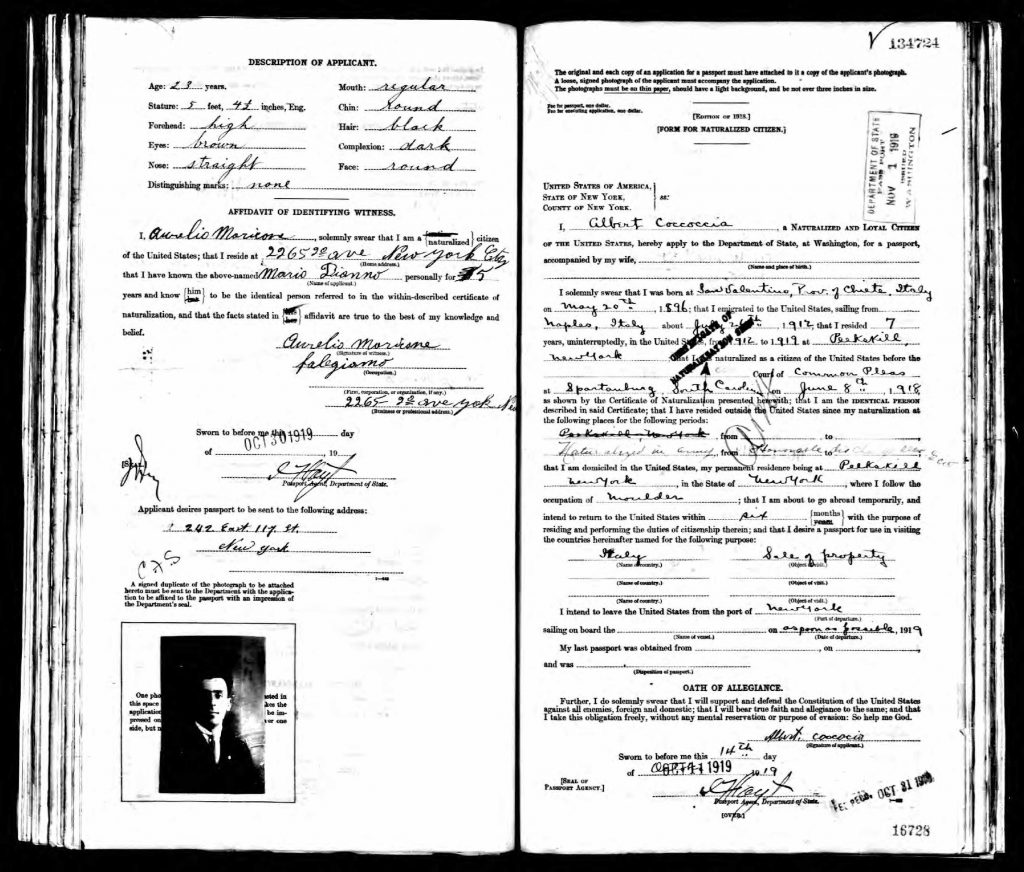 DESCRIPTION OF APPLICANT.
Age: 23 years. Mouth: regular
Stature: 5 feet, 4½ inches, Eng. Chin: round
Forehead: high Hair: black
Eyes: brown Complexion: dark
Nose: straight Face: round
Distinguishing marks: none
AFFIDAVIT OF IDENTIFYING WITNESS.
I, Aurelio Moricone, solemnly swear that I am a naturalized citizen
of the United States; that I reside at 2265 2d ave New York City
(Home address.)
that I have known the above-named Mario Dianno personally for 5
(Name of applicant.)
years and know him to be the identical person referred to in the within-described certificate of
naturalization, and that the facts stated in affidavit are true to the best of my knowledge and
belief.
Aurelio Moricone
(Signature of witness.)
falegiamo
(Occupation.)
(Firm, corporation, or organization, if any.)
2265 2d ave york New
(Business or professional address.)
Sworn to before me this day
OCT 30 1919
of , 19
[Seal.] Hayt
Passport Agent, Department of State.
Applicant desires passport to be sent to the following address:
242 East 117 St.
New York
A signed duplicate of the photograph to be attached
hereto must be sent to the Department with the applica-
tion to be affixed to the passport with an impression of
the Department's seal.
One pho sted in
this space kes the
application be im-
pressed on er one
side, but n
134724
The original and each copy of an application for a passport must have attached to it a copy of the applicant's photograph.
A loose, signed photograph of the applicant must accompany the application.
The photographs must be on thin paper, should have a light background, and be not over three inches in size.
Fee for passport, one dollar.
Fee for executing application, one dollar.
[EDITION OF 1918.]
[FORM FOR NATURALIZED CITIZEN.]
DEPARTMENT OF STATE
PASSPORT
NOV 1 1919
ISSUED
WASHINGTON
UNITED STATES OF AMERICA,
STATE OF NEW YORK, ss:
COUNTY OF NEW YORK.
I, Albert Coccoccia, a NATURALIZED AND LOYAL CITIZEN
OF THE UNITED STATES, hereby apply to the Department of State, at Washington, for a passport,
accompanied by my wife,
(Name and place of birth.)
I solemnly swear that I was born at San Valentino, Prov. of Chiete, Italy
on May 20th, 1896; that I emigrated to the United States, sailing from
Naples, Italy about 1912; that I resided 7
years, uninterruptedly, in the United States, from 1912 to 1919 at Peekskill,
New York that I was naturalized as a citizen of the United States before the
Court of Common Pleas
at Spartanburg, South Carolina, on June 8th, 1918
as shown by the Certificate of Naturalization presented herewith; that I am the IDENTICAL PERSON
described in said Certificate; that I have resided outside the United States since my naturalization at
the following places for the following periods:
Peekskill, New York, from to
in army, from to
that I am domiciled in the United States, my permanent residence being at Peekskill
New York, in the State of New York, where I follow the
occupation of Moulder; that I am about to go abroad temporarily, and
intend to return to the United States within six months years with the purpose of
residing and performing the duties of citizenship therein; and that I desire a passport for use in visiting
the countries hereinafter named for the following purpose:
Italy Sale of property
(Name of country.) (Object of visit.)
(Name of country.) (Object of visit.)
(Name of country.) (Object of visit.)
I intend to leave the United States from the port of New York
(Port of departure.)
sailing on board the on as soon as possible, 1919
(Name of vessel.) (Date of departure.)
My last passport was obtained from , on
and was
(Disposition of passport.)
OATH OF ALLEGIANCE.
Further, I do solemnly swear that I will support and defend the Constitution of the United States
against all enemies, foreign and domestic; that I will bear true faith and allegiance to the same; and that
I take this obligation freely, without any mental reservation or purpose of evasion: So help me God.
Albert Coccocia
(Signature of applicant.)
Sworn to before me this 14th day
of 1919
[SEAL OF
PASSPORT AGENCY.] Hayt
Passport Agent, Department of State.
[OVER.]
FEE RECD. OCT 31 1919
16728